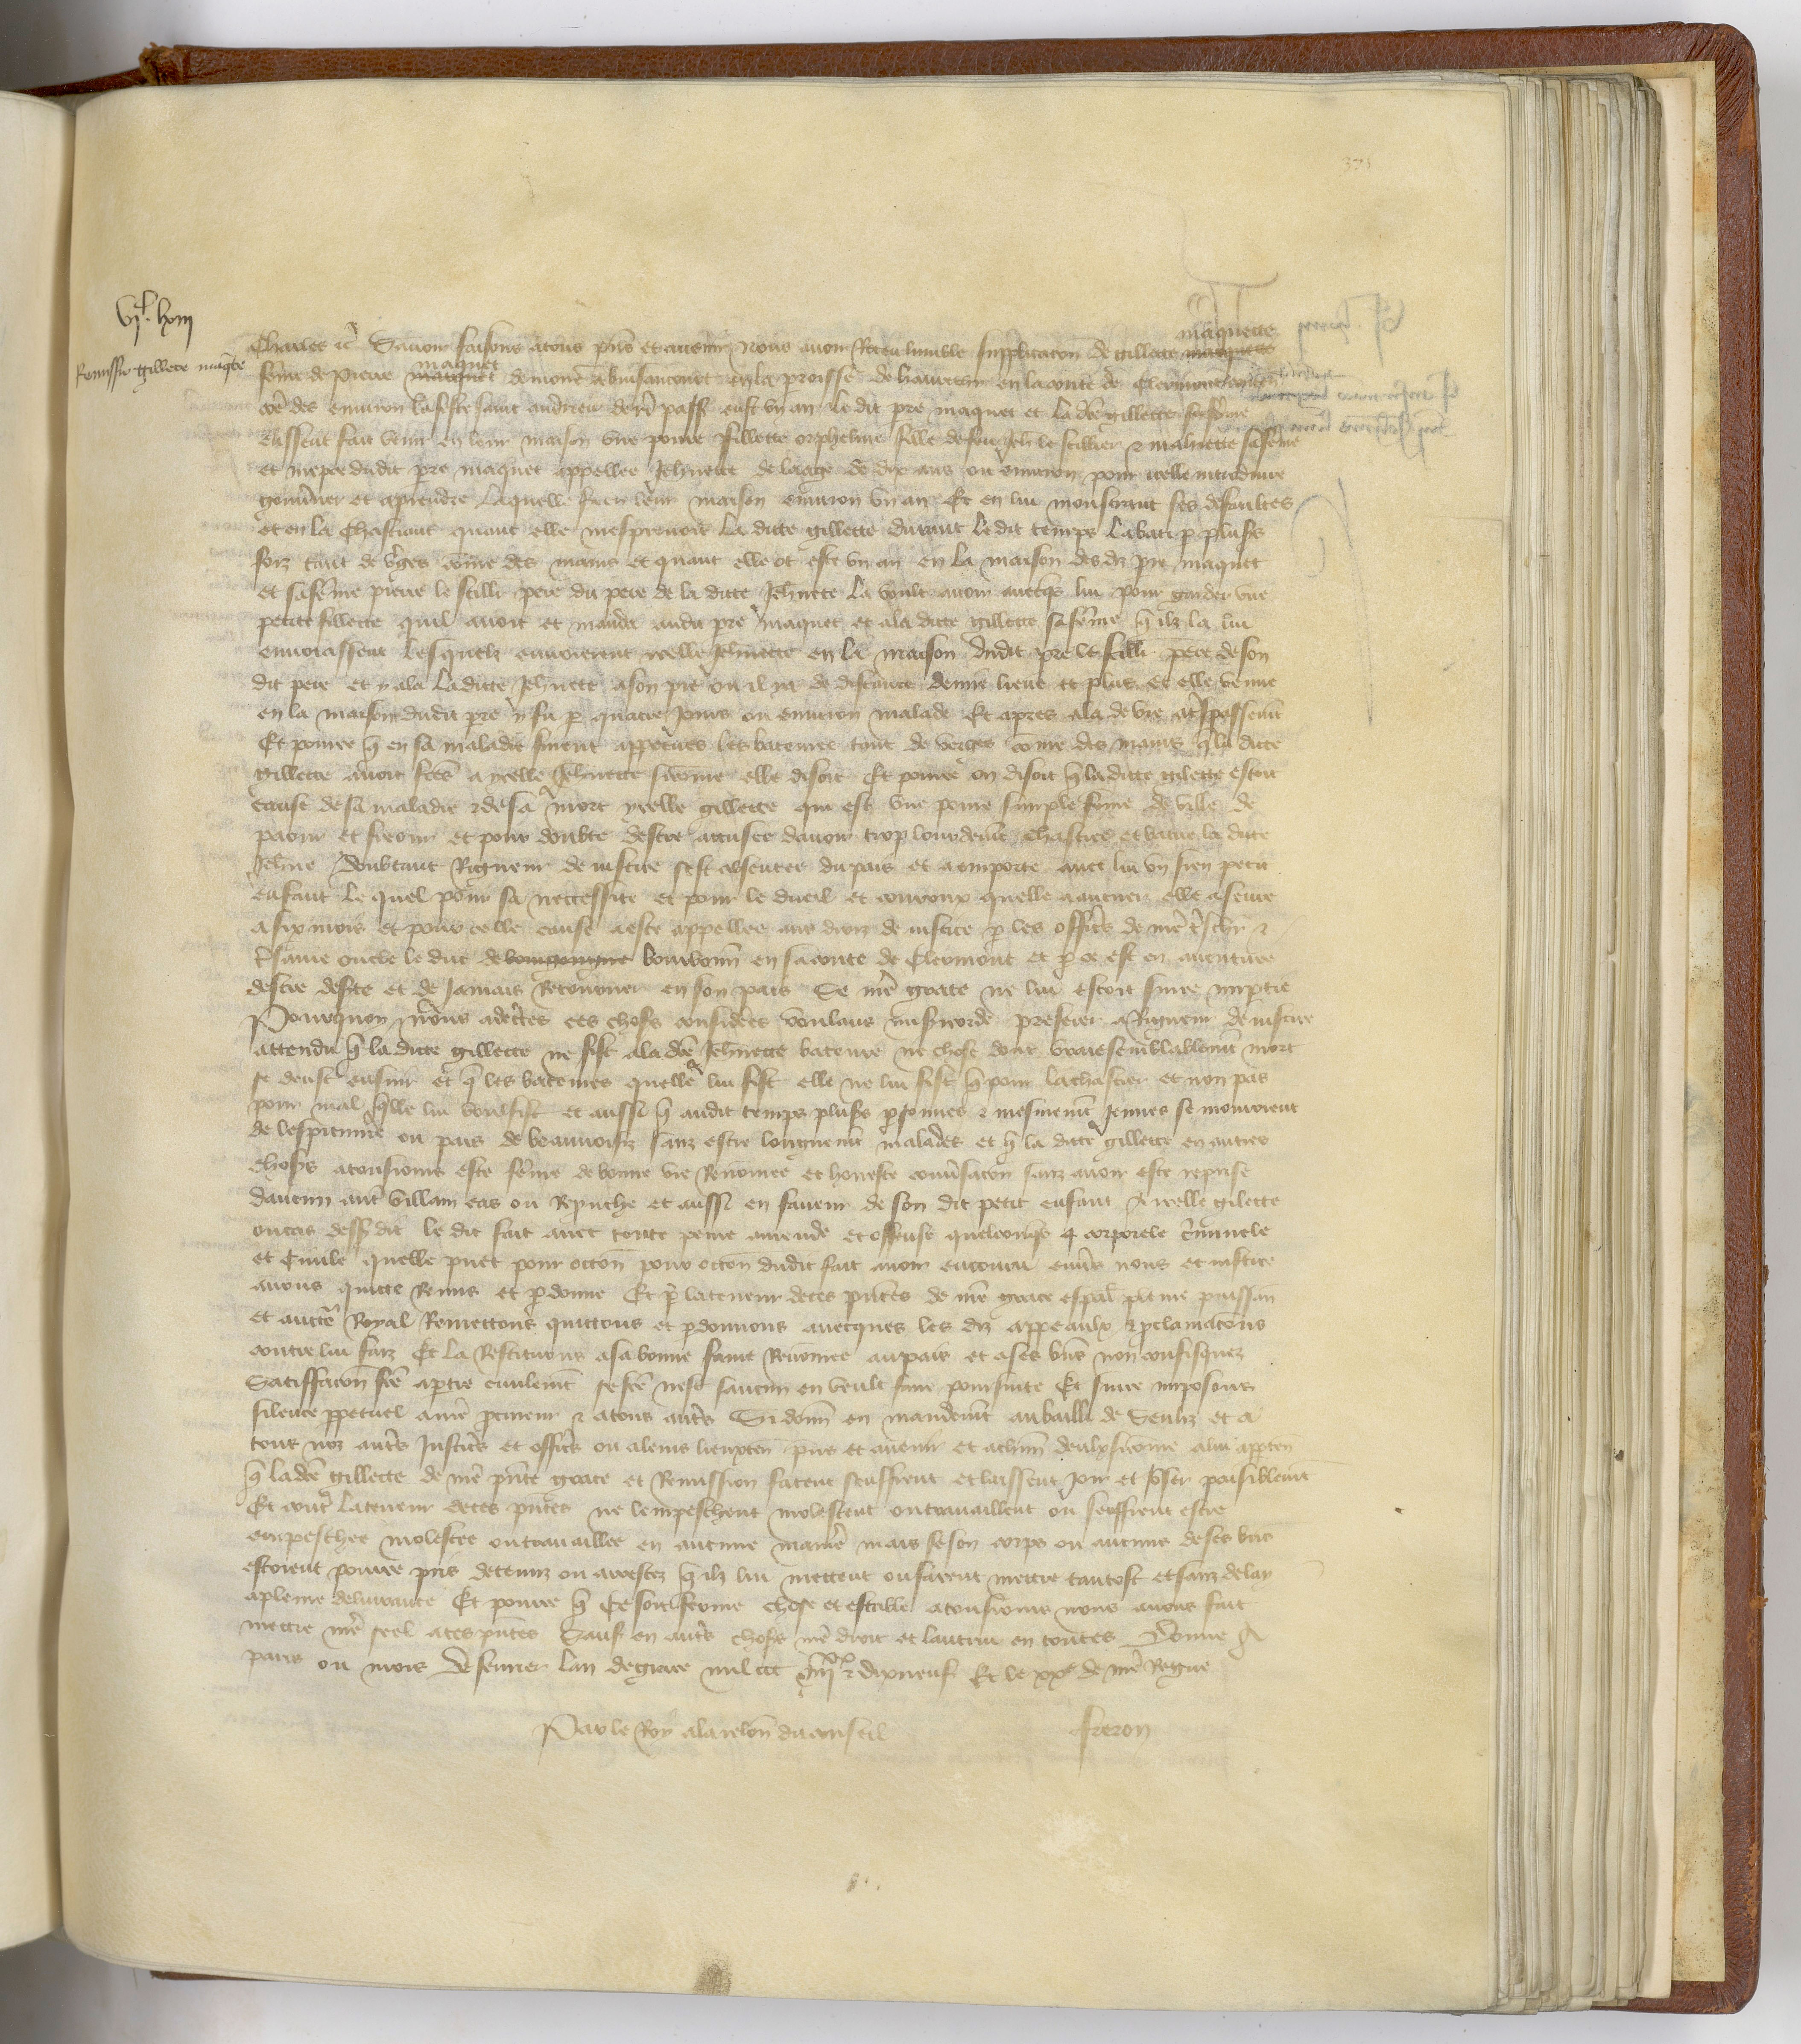 371
vjc lxiij
Remissio Gillete maqte
maquette
Charles etc Savoir faisons a tous pns et avenir nous avoir Receu lumble supplicacon de gillette maquette
maquet
femme de Pierre maquet demour a buisancourt en la proisse de en la conte de Clermont
come des environ la feste saint andrieu derr passe eust un an le dit pre maquet et la dce gillette sa feme
eussent fait venir en leur maison une povre fillette orpheline fille de feu Jeh le scillier & mahiette sa feme
et niepce dudit pre maquet appellee Jehnette de laage de dix ans ou environ pour icelle introduire
gouverner et aprendre laquelle fu en leur maison environ un an Et en lui monstrant ses defaultes
et en la chastiant quant elle mesprenoit la ditte gillette durant le dit temps la bati p pluss
foiz tant de verges come des mains et quant elle ot este un an en la maison des diz pre maquet
et sa feme pierre le scillr pere du pere de la ditte Jehnette la voult avoir avecqs lui pour garder une
petite fillette quil avoit et manda audit pre maquet et a la ditte gillette sa feme q ilz la lui
envoiassent lesquelz envoierent icelle Jehnette en la maison dudit pre le scillr pere de son
dit pere et y ala la ditte Jehnette a son pie ou il y a de distance demie lieue et plus et elle venue
en la maison dudit pre y fu p quatre jours ou environ malade Et apres ala de vie a trespassemt
Et pource q en sa maladie furent appeceues les bateures tant de verges come des mains q la ditte
gillette avoit fces a ycelle Jehnette sicome elle disoit Et pource on disoit q la ditte gilette estoit
cause de sa maladie & de sa mort ycelle gillette qui est une povre simple feme de ville de
paour et freour et pour doubte destre accusee davoir trop lourdemt chastiee et batue la dite
Jehnne doubtant Rigueur de justice sest absentee du pais et a emporte avec lui un sien petit
enfant le quel pour sa neccessite et pour le dueil et courroux quelle a aucuez elle a sevre
a six mois et pour celle cause a este appellee aus droiz de justice p les officrs de nre tschr &
tsame oncle le duc de bourgongne bourbonn en sa conte de Clermont et p ce est en aventure
destre deserte et de jamais Retourner en son pais Se nre grace ne lui estoit sur ce impartie
Pourquoy nous adecertes ces choses considerees voulans misericorde preferer a Rigueur de justice
attendu q la ditte gillette ne fist a la dce Jehnette bateure ne chose dont vraiesemblablemt mort
se deust ensuir et q les bateures quelle lui fist elle ne lui fist q pour la chastier et non pas
pour mal qlle lui voulsist et aussi q audit temps pluss psonnes & mesmemt Jeunes se mouroient
de lespidimie ou pais de beauvoisiz sanz estre longuemt malades et q la ditte gillette en autres
choses a tousjours este feme de bonne vie Renomee et honeste conversacon sanz avoir este reprise
daucun autre villain cas ou Reprouche et aussi en faveur de son dit petit enfant A icelle gilette
ou cas dessusdit le dit fait avec toute peine amende et offense quelconqs corporele criminele
et civile quelle puet pour occon pour occon dudit fait avoir encouru envers nous et justice
avons quitte Remis et pdonne Et p la teneur de ces pntes de nre grace espal plaine puissan
et aucte Royal Remettons quittons et pdonnons avecques les diz appeaulx & pclamacons
contre lui faiz Et la Restituons a sa bonne fame Renomee au pais et a ses bns non confisquez
Satisfacon fce a ptie civilemt se fce nest saucun en veult faire poursuite Et sur ce imposons
silence ppetuel a nre pcureur & a tous autrs Si donn en mandemt au bailli de Senliz et a
tous noz autrs Justicrs et officrs ou a leurs lieuxten pns et avenir et a chun deulx sicome a lui appten
q la dce gillette de nre pnte grace et Remission facent seuffrent et laissent joir et user paisiblemt
Et contr la teneur de ces pntes ne lempeschent molestent ou travaillent ou seuffrent estre
empeschee molestee ou travaillee en aucune maniere mais se son corps ou aucuns de ses bns
estoient pource pris detenuz ou arrestez q ilz lui mettent ou facent mettre tantost et sanz delay
a plaine delivrance Et pource q Ce soit ferme chose et estable a tousjours nous avons fait
mettre nre seel a ces pntes Sauf en autrs choses nre droit et lautrui en toutes Donne A
paris ou mois de fevrier lan de grace mil ccc iiijxx & dixneuf Et le xxe de nre Regne
Par le Roy a la relon du conseil
freron